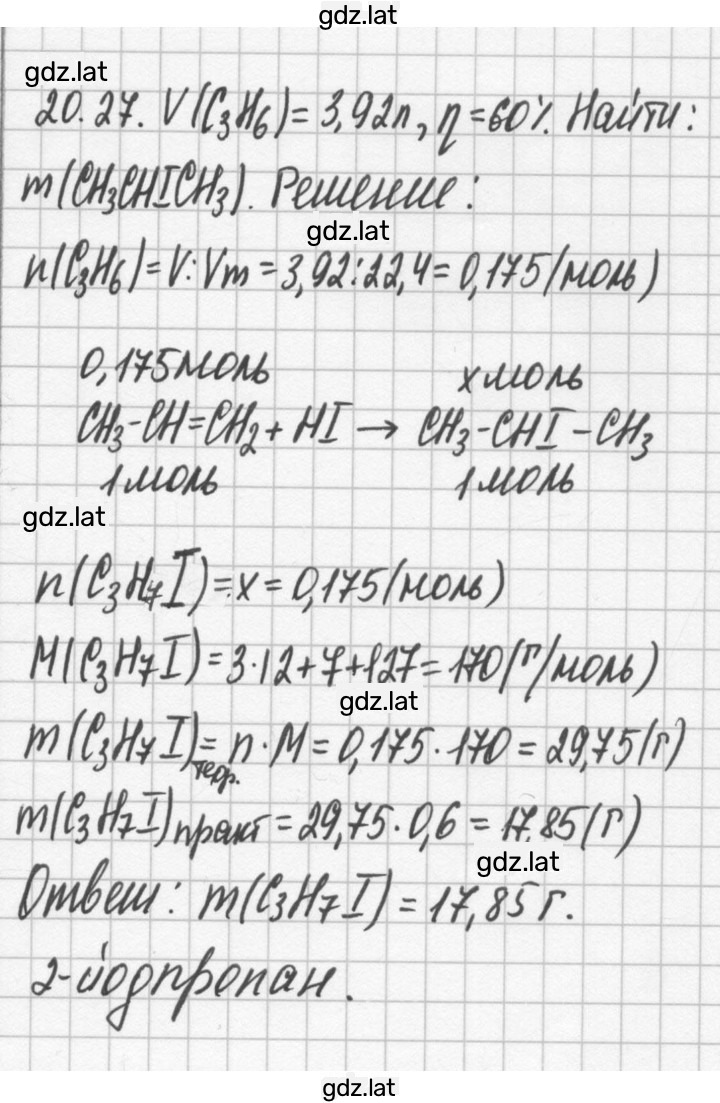 gdz.lat
gdz.lat
20.27. V(C₃H₆)=3,92л, η=60%. Найти:
m(CH₃CHICH₃). Решение:
gdz.lat
n(C₃H₆)=V:Vm=3,92:22,4=0,175(моль)
0,175моль х моль
CH₃-CH=CH₂+HI→CH₃-CHI-CH₃
1 моль 1 моль
gdz.lat
n(C₃H₇I)=x=0,175(моль)
M(C₃H₇I)=3·12+7+127=170(г/моль)
gdz.lat
m(C₃H₇I)теор.=n·M=0,175·170=29,75(г)
m(C₃H₇I)практ=29,75·0,6=17,85(г)
gdz.lat
Ответ: m(C₃H₇I)=17,85г.
2-йодпропан.
gdz.lat